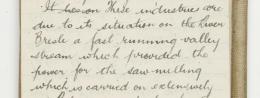 These industries are
due to its situation on the River
Bresle a fast running valley
stream which provided the
power for the saw-milling
which is carried on extensively